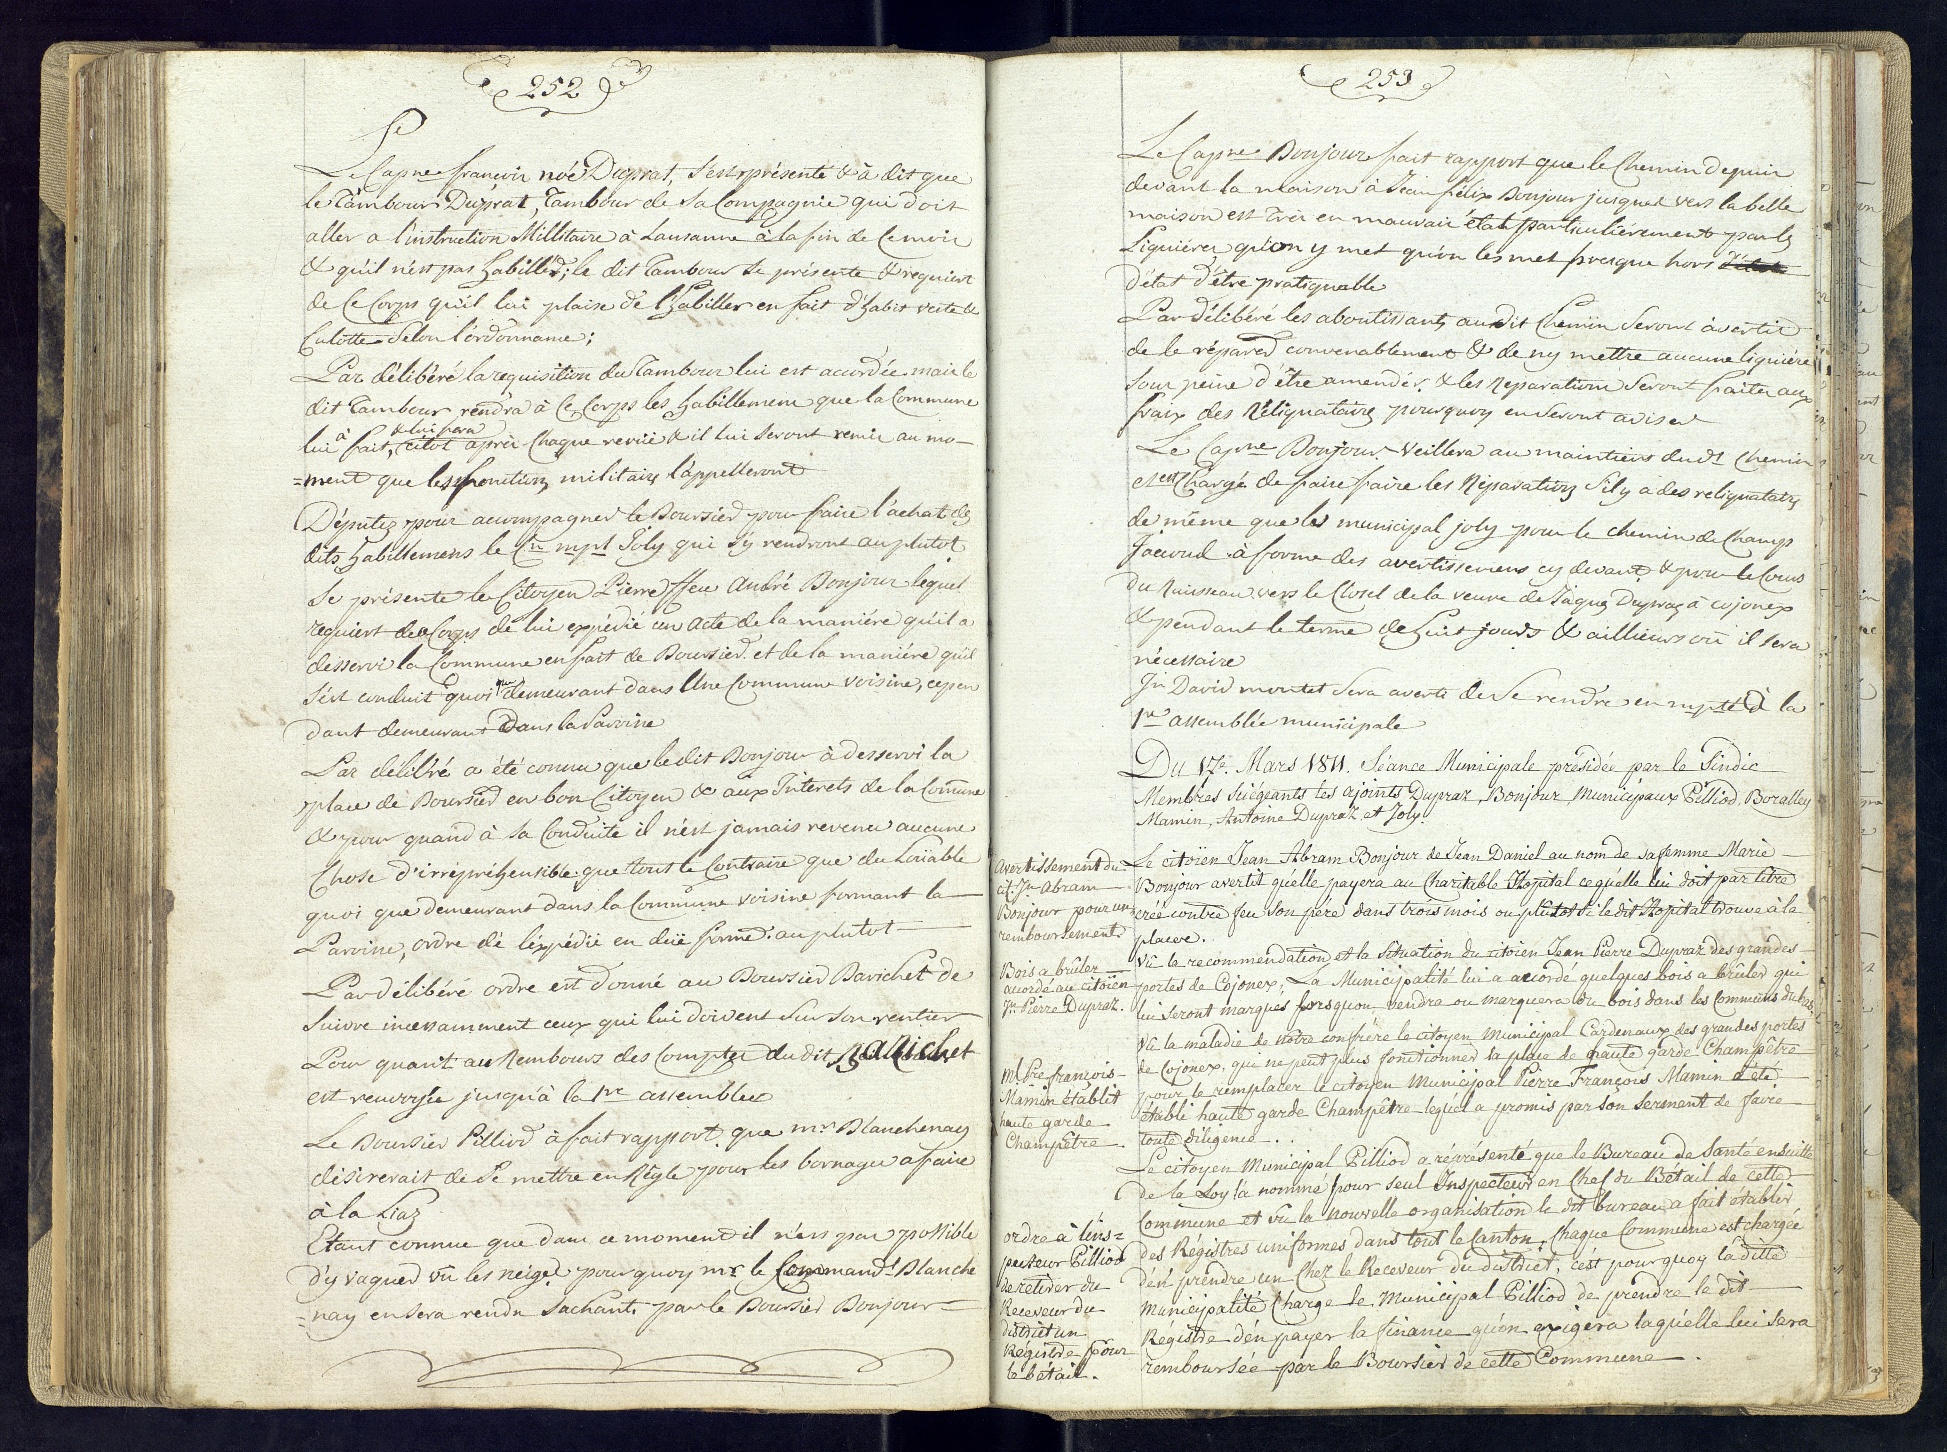 252
Le Capne françois noé Duprat, s'est présenté & à dit que
le Tambour Duprat, Tambour de sa Compagnie qui doit
aller a l'instruction Millitaire à Lausanne à la fin de Ce mois
& qu'il n'est pas habillés; le dit Tambour se présente & requiert
de Ce Corps qu'il lui plaise de l'habiller en fait d'habit veste &
Culotte Selon l'ordonnance;
Par délibéré la requisition du Tambour lui est acordée mais le
dit Tambour rendra à Ce Corps les habillemens que la Commune
& lui fera
lui à fait, citot après Chaque revüe & il lui seront remis au mo-
=ment que les fonctions militaires l'appelleront
Députés pour acompagner le Boursier pour faire l'achat des
dits habillemens le Cn mpl Joly qui s'y rendront au plutot
Se présente le Citoyen Pierre ffeu André Bonjour lequel
requiert de Ce Corps de lui expédié un acte de la maniére qu'il a
desservi la Commune en fait de Boursier et de la maniére qu'il
s'est conduit quoi que demeurant dans Une Commune voisine, cepen
dant demeurant Dans la Paroisse
Par délibéré a été connu que le dit Bonjour à desservi la
place de Boursier en bon Citoyen & aux Interets de la Comune
& pour quand à sa Conduite il n'est jamais revenu aucune
Chose d'irrépréhensible que tout le Contraire que du Loüable
quoi que demeurant dans la Commune voisine formant la
Paroisse, ordre de l'expédié en düe forme au plutot
Par délibéré ordre est donné au Boursier Barichet de
Suivre incessamment ceux qui lui doivent sur son rentier
Pour quant au Rembours des Comptes du dit Barichet
est renvoyée jusqu'à la 1re assemblée
Le Boursier Pilliod à fait rapport que mr Blanchenay
désirerait de se mettre en Règle pour les bornages a faire
à la Liaz
Etant connue que dans ce moment il n'est pas possible
d'y vaquer vû les neiges pourquoy mr le Commandt Blanche
=nay en sera rendu Sachant par le Boursier Bonjour =
253
Le Capne Bonjour fait rapport que le Chemin depuis
devant la maison à Jean félix Bonjour jusques vers la belle
maison est très en mauvais état particulièrement par les
Liguières qu'on y met qu'on les met presque hors
d'état d'être pratiquable
Par délibéré les aboutissants audit Chemin seront avertis
de le réparer convenablement & de n'y mettre aucune liguière
sous peine d'être amendés & les Réparations seront faites aux
fraix des Réliquataires pourquoy en seront avisés
Le Capne Bonjour Veillera au maintiens du dt Chemin
et est Chargé de faire faire les Réparations s'il y à des reliquataires
de même que le municipal joly pour le chemin de Champ
Jaccoud à forme des avertissemens cy devant & pour le Cours
du Ruisseau vers le Closel de la veuve de Jaques Dupraz à Cojonex
& pendant le terme de huit jours & aillieurs où il sera
nécessaire
Jn David montet sera averti de se rendre en mpté à la
1re assemblée municipale
Du 17e. Mars 1811. Séance Municipale présidée par le Sindic
Membres Siégeants les ajoints Dupraz, Bonjour, Municipaux Pilliod, Boralley
Mamin, Antoine Dupraz et Joly.
Avertissement du
cit. Jn Abram
Bonjour pour un
remboursement
Le citoïen Jean Abram Bonjour de Jean Daniel au nom de sa femme Marie
Bonjour avertit qu'elle payera au Charitable Hopital ce qu'elle lui doit par titre
créé contre feu son pére dans trois mois ou plûtot si le dit Hopital trouve à le
placer.
Bois a brûler
acordé au citoïen
Jn Pierre Dupraz.
Vû la recommendation et la situation du citoïen Jean Pierre Dupraz des grandes
portes de Cojonex, La Municipalité lui a acordé quelques bois a brûler qui
lui seront marqués lorsquon vendra ou marquera du bois dans les Communs du bas.
ml Pre françois
Mamin établit
haute garde
Champêtre
Vû la maladie de notre confrère le citoyen Municipal Cardenaux des grandes portes
de Cojonex, qui ne peut plus fonctionner la place de haute garde Champêtre
pour le remplacer le citoyen Municipal Pierre François Mamin a été
établi haute garde Champêtre lequel a promis par son serment de faire
toute diligence . .
ordre à l'ins=
pecteur Pilliod
de retirer du
Receveur du
district un
Régistre pour
le bétail.
Le citoyen Municipal Pilliod a réprésenté que le Bureau de Santé ensuitte
de la Loy l'a nommé pour seul Inspecteur en Chef du Bétail de cette
Commune et vû la nouvelle organisation le dit bureau a fait établir
des Régistres uniformes dans tout le Canton, Chaque Commune est chargée
d'en prendre un Chez le Receveur du district, c'est pourquoy la ditte
Municipalité Charge le Municipal Pilliod de prendre le dit
Régistre d'en payer la finance qu'on exigera laquélle lui sera
remboursée par le Boursier de cette Commune .